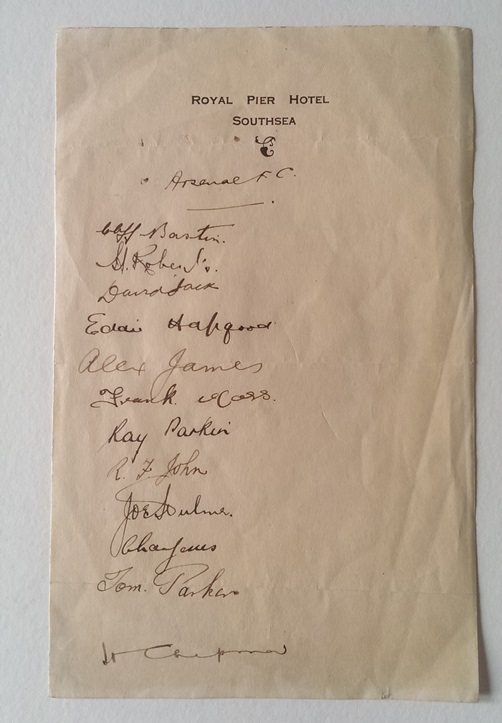 ROYAL PIER HOTEL
SOUTHSEA
Arsenal F.C.
Cliff Bastin.
H. Roberts.
David Jack
Eddie Hapgood
Alex James
Frank Moss.
Ray Parkin
R. F. John
Joe Hulme.
Chas Jones
Tom. Parker
H Chapman